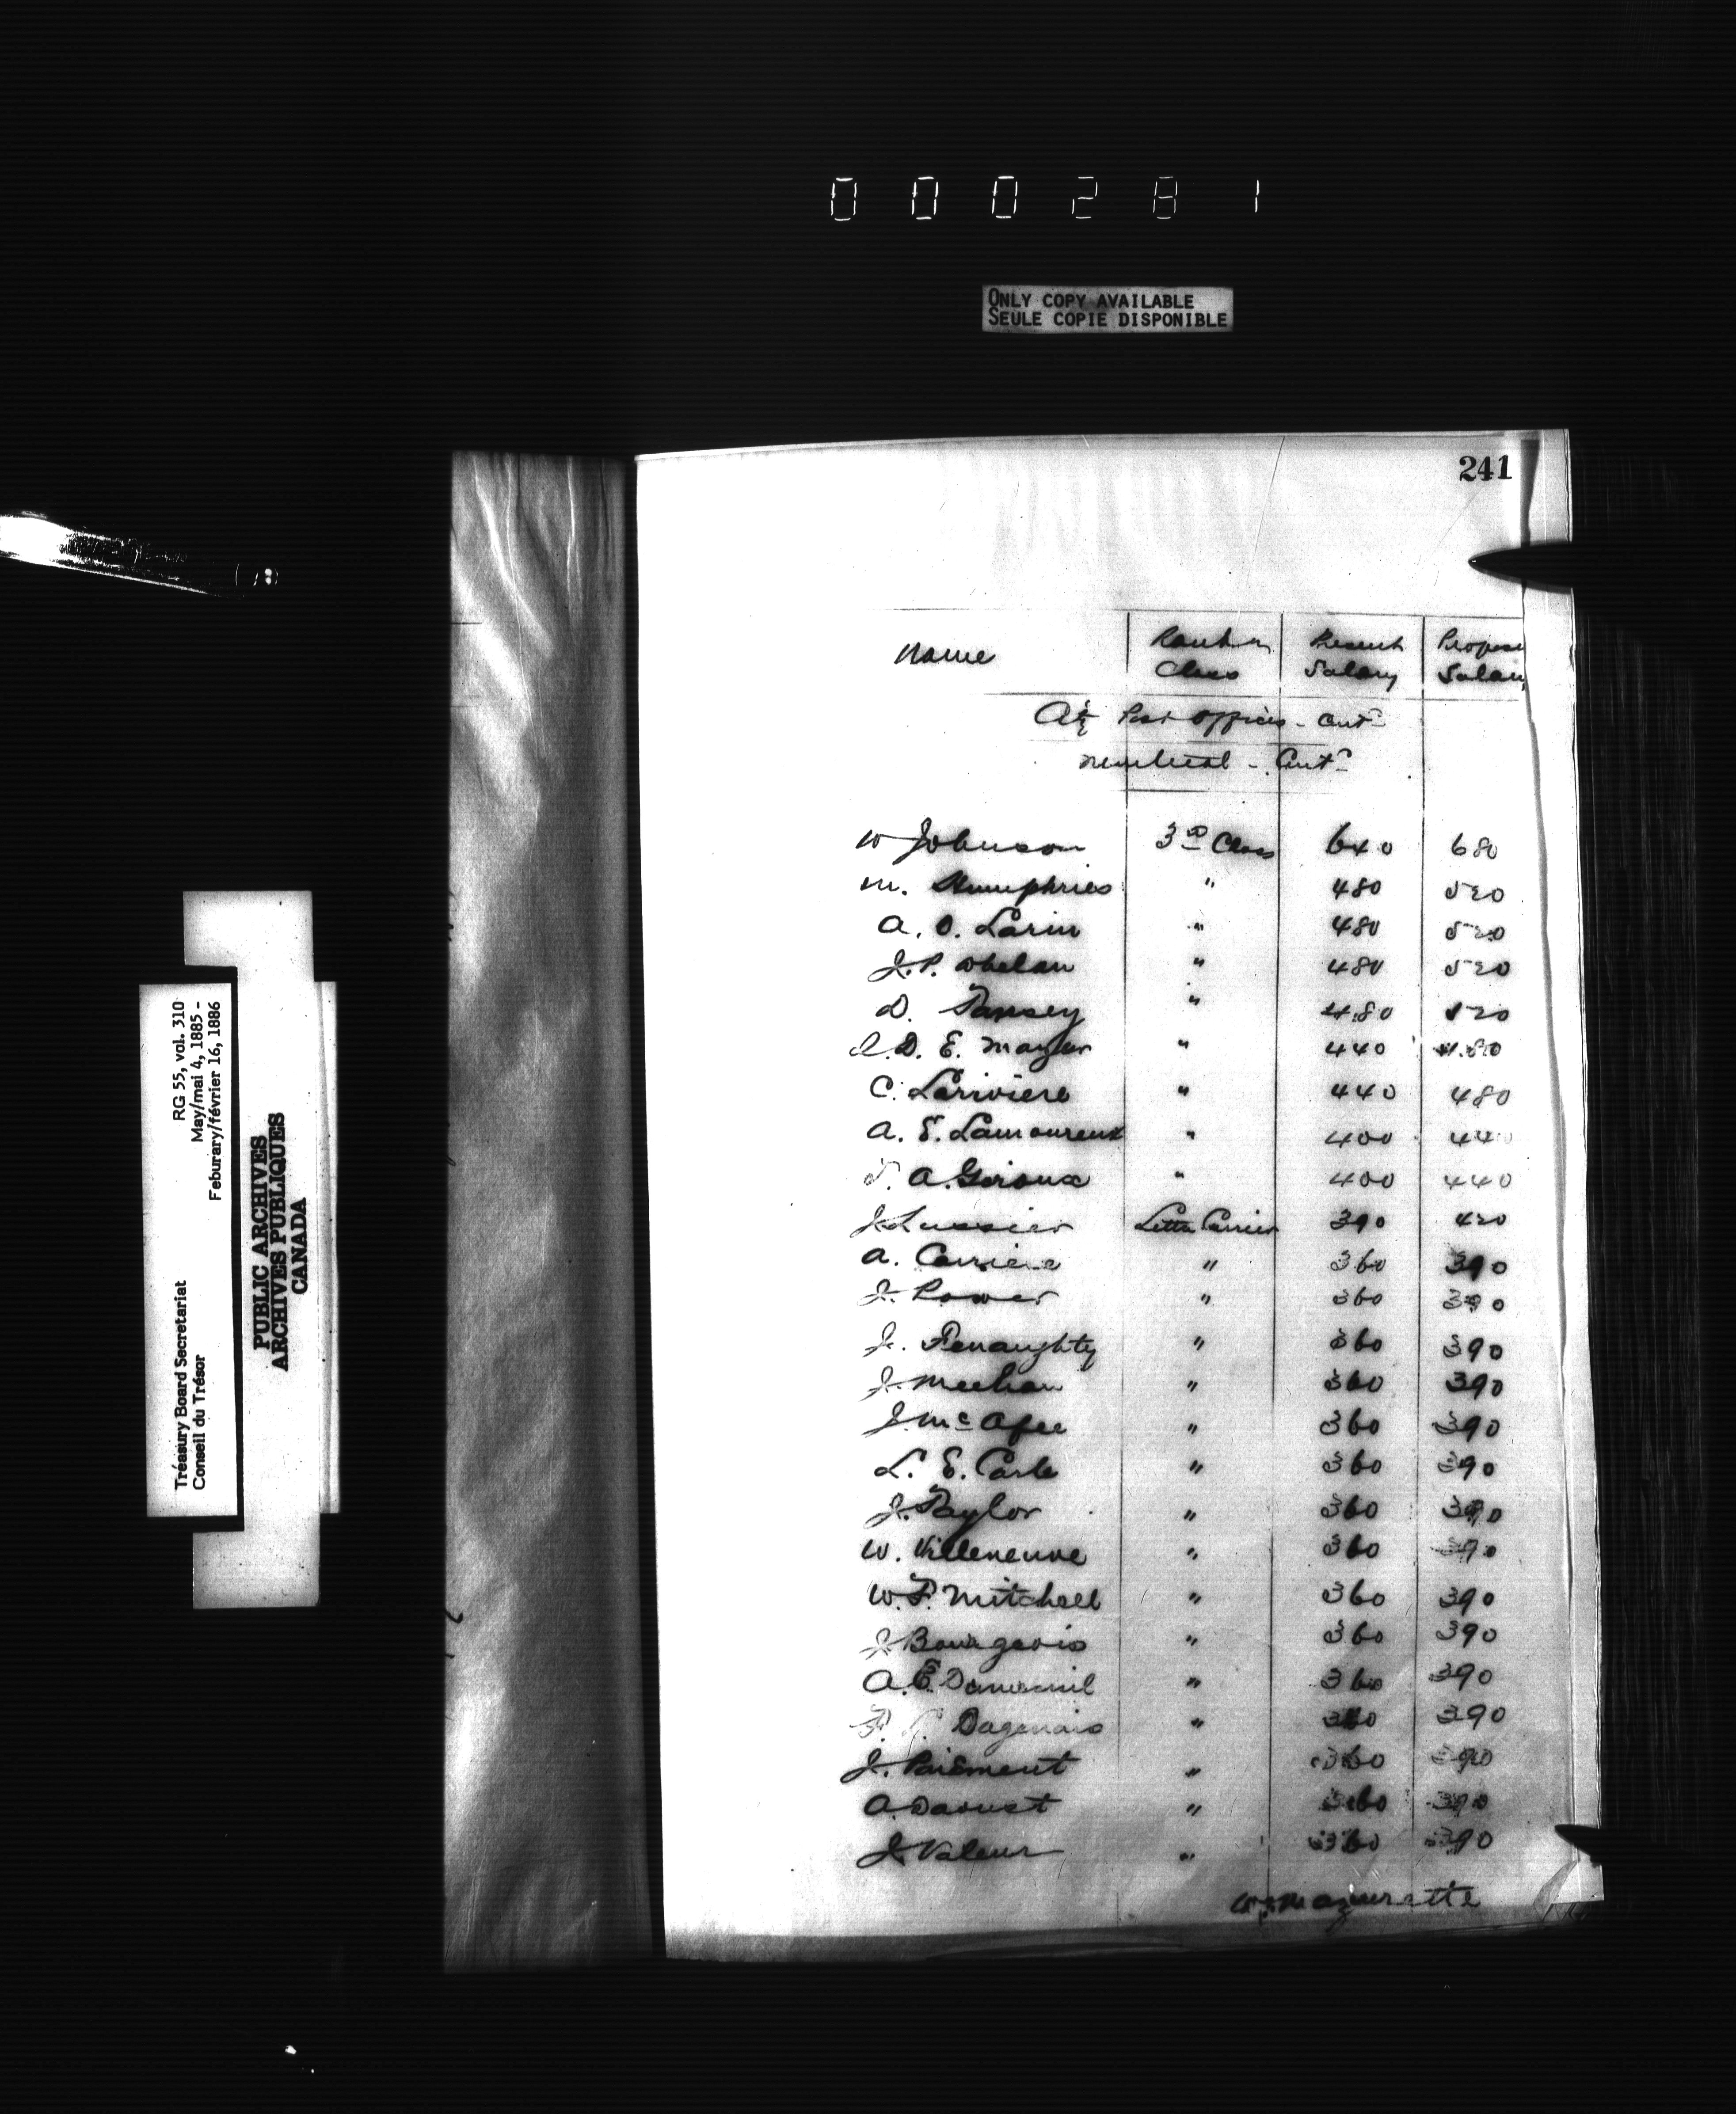 000281
ONLY COPY AVAILABLE
SEULE COPIE DISPONIBLE
241
Name Rank or Class Present Salary Propose Salary
Post Offices - Cont
Montreal - Cont
W Johnson 3rd Class 640 680
M. Humphries " 480 520
A. O. Larin " 480 520
J. P. Whelan " 480 520
D. Tansey " 480 520
D. E. Mayer " 440 480
C. Lariviere " 440 480
A. E. Lamoureux " 400 440
A. Giroux " 400 440
J Lussier Letter Carrier 390 420
A. Carriere " 360 390
J. Power " 360 390
J. Fenaughty " 360 390
J. Meehan " 360 390
J. McAfee " 360 390
L. E. Carle " 360 390
J. Taylor " 360 390
W. Villeneuve " 360 390
W. F. Mitchell " 360 390
J Bourgeois " 360 390
A. E. " 360 390
Dagenais " 360 390
J. Paiement " 360 390
A Daoust " 360 390
J Valeur " 360 390
Treasury Board Secretariat RG 55, vol. 310
Conseil du Trésor May/mai 4, 1885 -
Feburary/février 16, 1886
PUBLIC ARCHIVES
ARCHIVES PUBLIQUES
CANADA